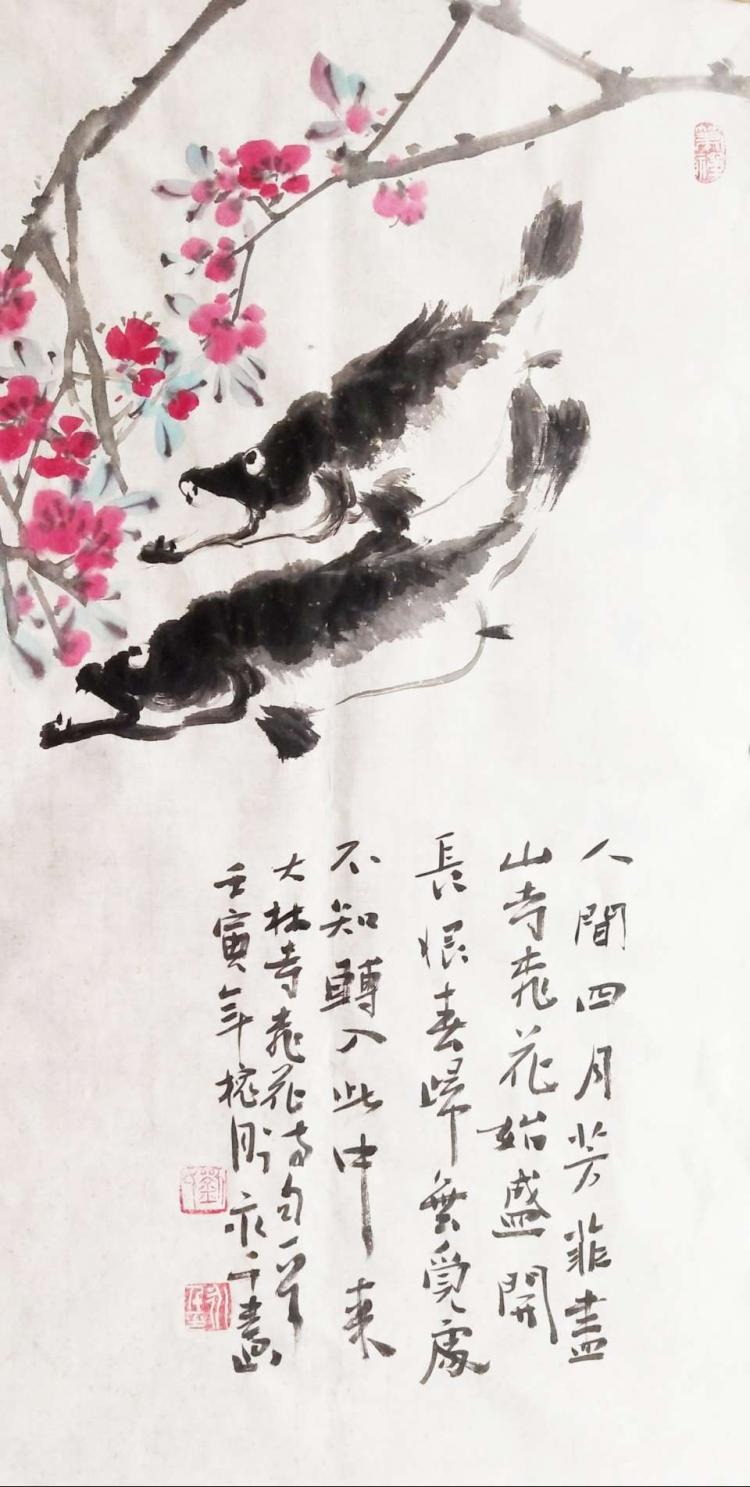 人間四月芳菲盡
山寺桃花始盛開
長恨春歸無覓處
不知轉入此中来
大林寺桃花诗句一
壬寅年榴月畫